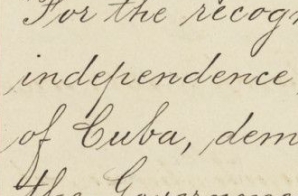 For the recog
independence
of Cuba, dem
the Governme